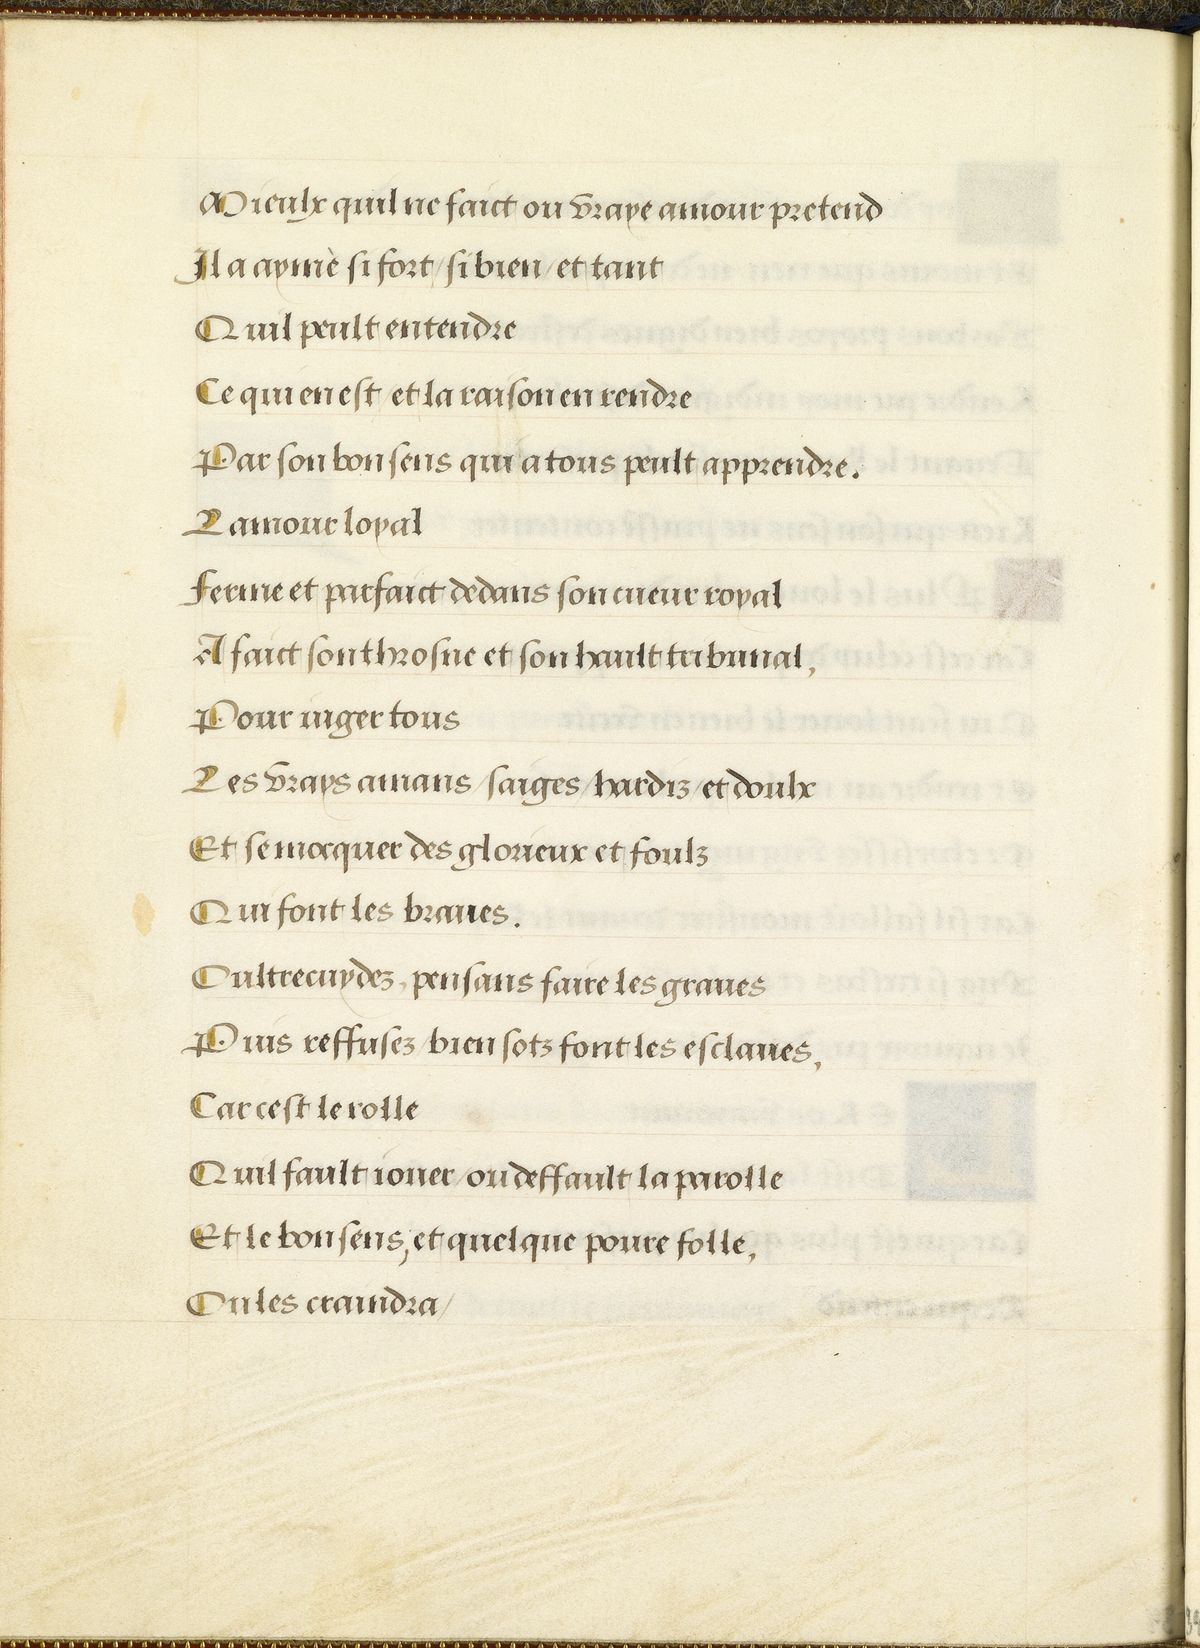 Mieulx quil ne faict ou vraye amour pretend
Il a aymè si fort / si bien / et tant
Quil peult entendre
Ce qui en est et la raison en rendre
Par son bon sens qui a tous peult apprendre.
Lamour loyal
Ferme et parfaict dedans son cueur royal
A faict son throsne et son hault tribunal,
Pour iuger tous
Les vrays amans / saiges / hardiz / et doulx
Et se mocquer des glorieux et foulz
Qui font les braues.
Oultrecuydez, pensans faire les graues
Puis reffusez / bien sotz font les esclaues,
Car cest le rolle
Quil fault iouer / ou deffault la parolle
Et le bon sens, et quelque poure folle,
Ou les craindra /